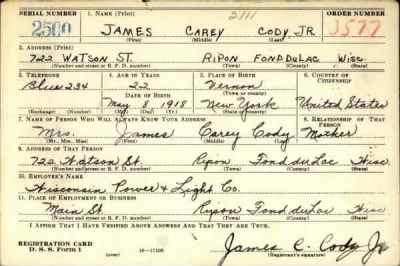 SERIAL NUMBER 1. NAME (Print) 2111 ORDER NUMBER
2500 JAMES CAREY CODY JR. 3577
(First) (Middle) (Last)
2. ADDRESS (Print)
722 WATSON ST. RIPON FOND DU LAC WISC.
(Number and street or R. F. D. number) (Town) (County) (State)
3. TELEPHONE 4. AGE IN YEARS 5. PLACE OF BIRTH 6. COUNTRY OF CITIZENSHIP
Blue 234 22 Vernon
DATE OF BIRTH (Town or county)
May 8 1918 New York United States
(Exchange) (Number) (Mo.) (Day) (Yr.) (State or country)
7. NAME OF PERSON WHO WILL ALWAYS KNOW YOUR ADDRESS 8. RELATIONSHIP OF THAT PERSON
Mrs. James Carey Cody Mother
(Mr., Mrs., Miss) (First) (Middle) (Last)
9. ADDRESS OF THAT PERSON
722 Watson St. Ripon Fond du Lac Wisc.
(Number and street or R. F. D. number) (Town) (County) (State)
10. EMPLOYER'S NAME
Wisconsin Power & Light Co.
11. PLACE OF EMPLOYMENT OR BUSINESS
Main St. Ripon Fond du Lac Wisc
(Number and street or R. F. D. number) (Town) (County) (State)
I AFFIRM THAT I HAVE VERIFIED ABOVE ANSWERS AND THAT THEY ARE TRUE.
REGISTRATION CARD
D. S. S. Form 1 16-17105 James C. Cody Jr
(over) (Registrant's signature)